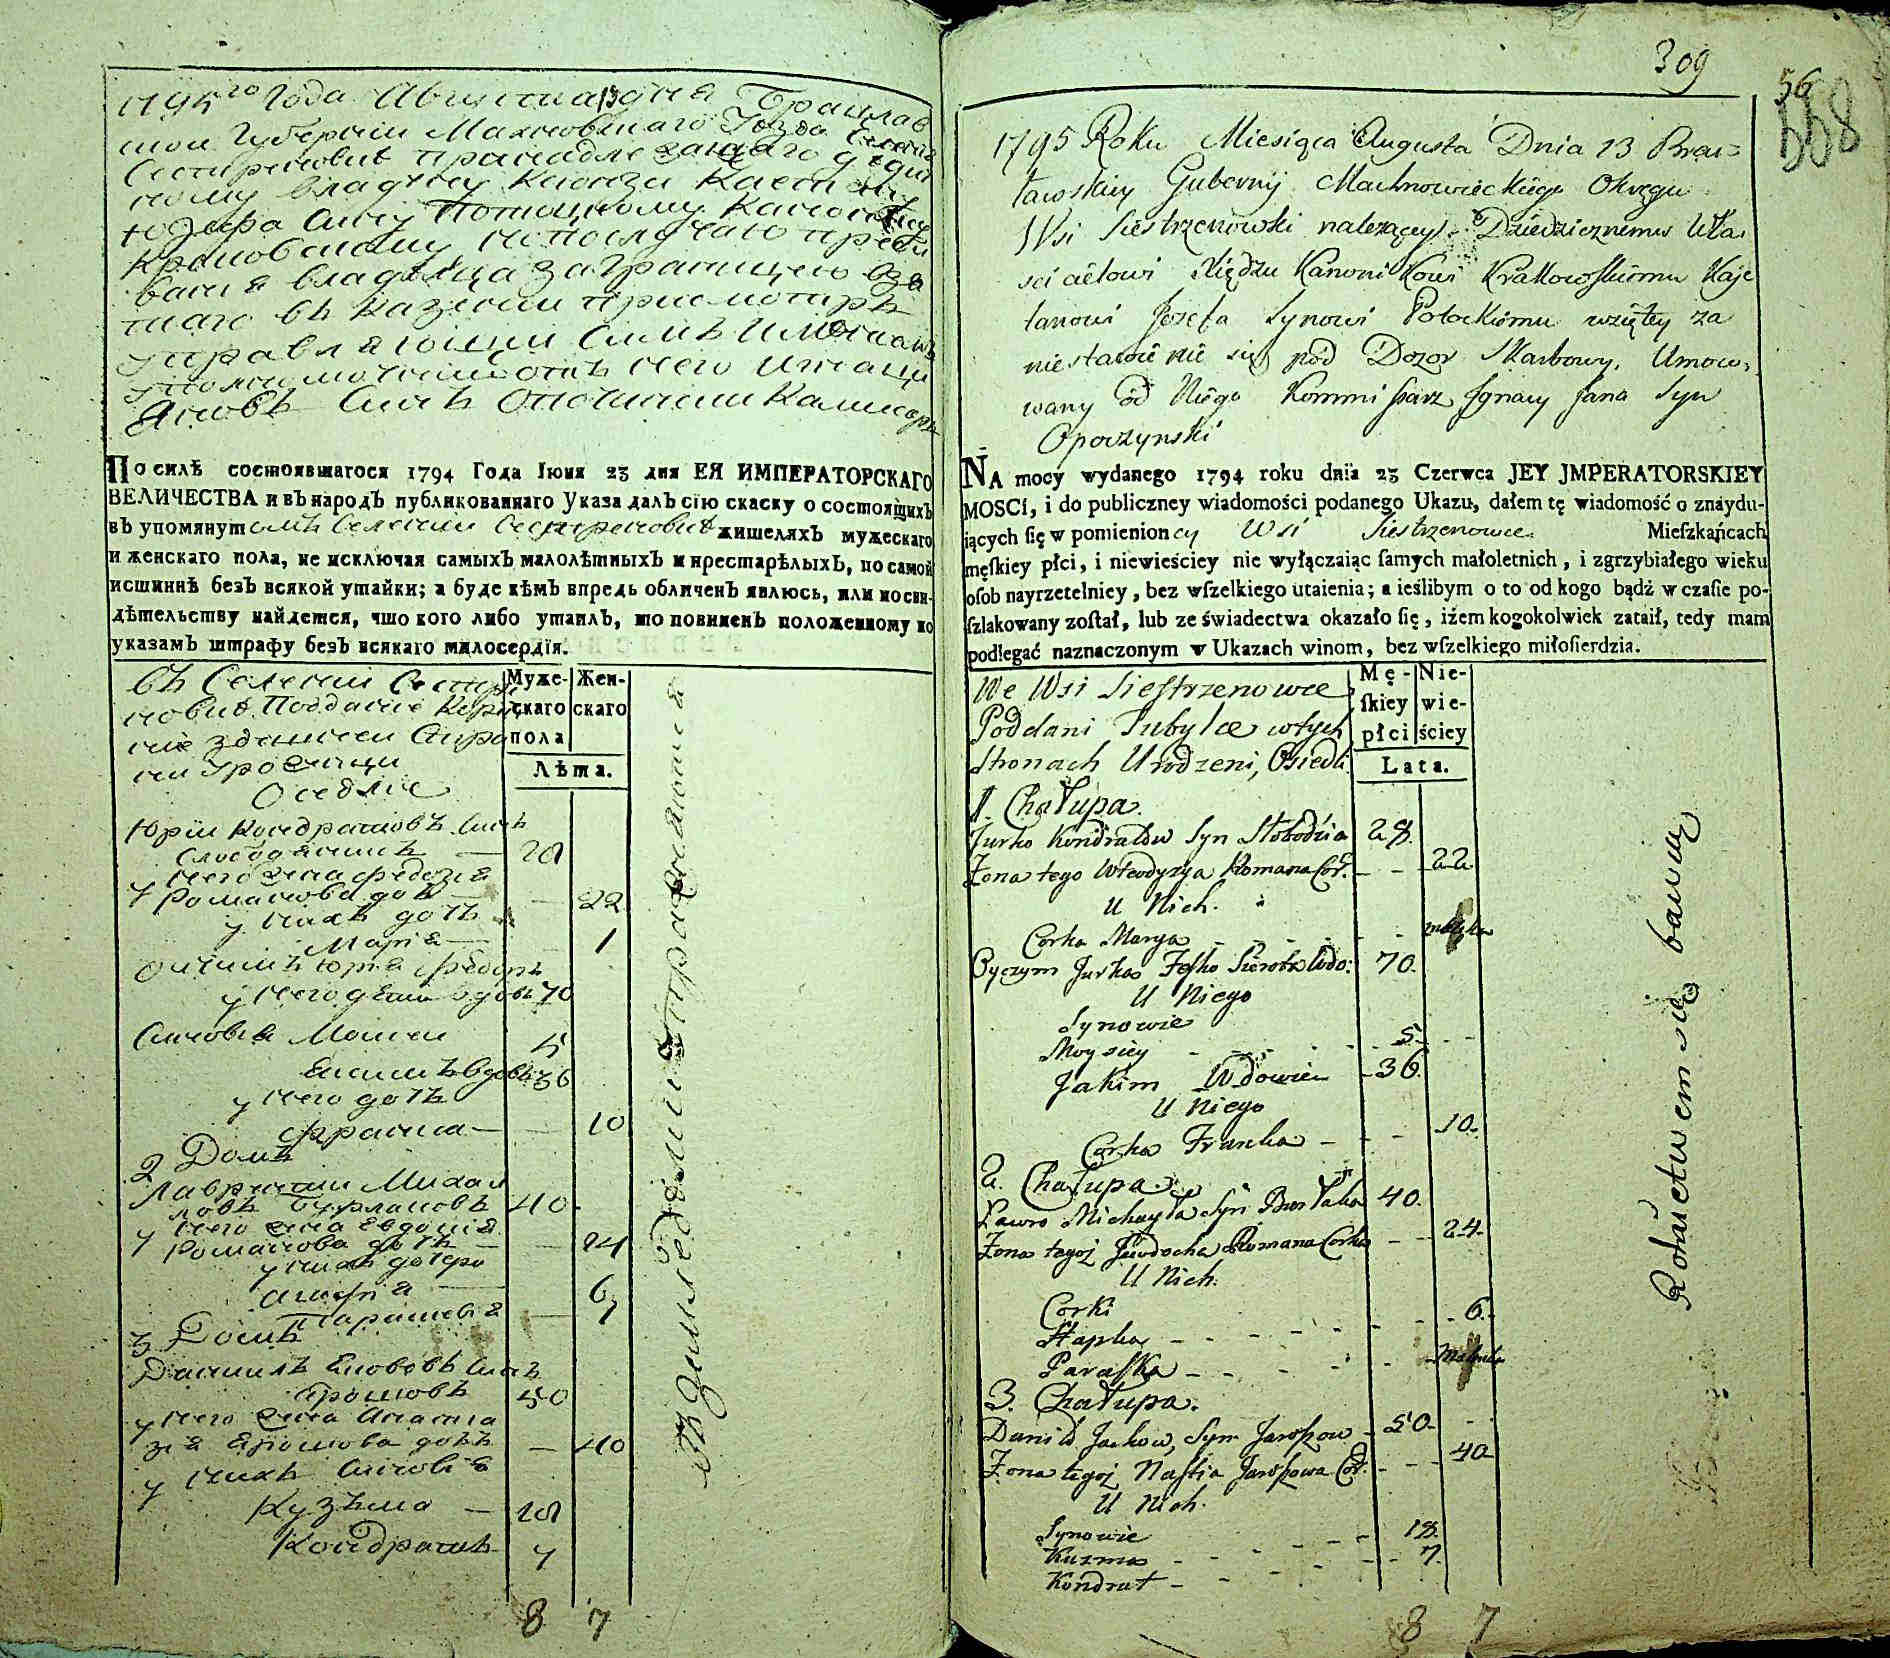 1795го Года Августа 13 дня Брацлав
ской Губерніи Махновскаго Уезда
Сестреновкѣ принадлежащаго дедич
ному владѣлцу
Юзефа сину Потоцкому
Краковскому
владѣлца заграницею
таго въ казенный присмотръ
управляющій
уполномоченный отъ него Игнаци
Яновъ синъ Опочински Камисаръ
По силѣ состоявшагося 1794 Года Іюня 23 дня ЕЯ ИМПЕРАТОРСКАГО
ВЕЛИЧЕСТВА и въ народъ публикованнаго Указа далъ сію скаску о состоящихъ
въ упомянутомъ Селеніи Сестреновкѣ жителяхъ мужескаго
и женскаго пола, не исключая самыхъ малолѣтныхъ и престарѣлыхъ, по самой
истиннѣ безъ всякой утайки; а буде кѣмъ впредь обличенъ явлюсь, или по сви-
дѣтельству найдется, что кого либо утаилъ, то повиненъ положенному по
указамъ штрафу безъ всякаго милосердія.
въ Селеніи Сестре
новкѣ Подданые
Муже-
скаго
пола
Жен-
скаго
Лѣта.
Оседлые
Юрій Кондратовъ синъ
Слободянинъ — 28
него жена Федозія
Романова дочь — 22
у нихъ дочь
Марія — 1
Отчимъ Юрка
у него дети вдовъ 70
Синовья Мойсей 5
Екимъ вдовъ 36
у него дочь
Франка — 10
2 Домъ
Лавринъ Михай
ловъ Бурлаковъ 40
у него жена Евдокія
Романова дочь — 24
у нихъ дочери
Агафія — 6
Параскевія — 1
3 Домъ
Данилъ Яковов синъ
Ярошовъ 50
у него жена Анаста
зія Ярошова дочь — 40
у нихъ синовья
Кузьма — 18
Кондратъ 7
8 7
309
56
558
1795 Roku Miesiąca Augusta Dnia 13 Brac=
ławskiey Gubernij Machnowieckiego Okręgu
Wsi Siestrzenowski należącey Dziedzicznemu Wła-
scicielowi Xiędzu Kanonikowi Krakowskiemu Kaje
tanowi Jozefa Synowi Potockiemu wziętey za
niestawienie się pod Dozor Skarbowy, Umoco-
wany od Niego Kommissarz Ignacy Jana Syn
Opoczynski
NA mocy wydanego 1794 roku dnia 23 Czerwca JEY JMPERATORSKIEY
MOSCI, i do publiczney wiadomości podanego Ukazu, dałem tę wiadomość o znaydu-
iących ſię w pomienioney Wsi Siestrzenowce Mieſzkańcach
męſkiey płci, i niewieściey nie wyłączaiąc ſamych małoletnich, i zgrzybiałego wieku
oſob nayrzetelniey, bez wſzelkiego utaienia; a ieślibym o to od kogo bądź w czaſie po-
ſzlakowany zoſtał, lub ze świadectwa okazało ſię, iżem kogokolwiek zataił, tedy mam
podlegać naznaczonym w Ukazach winom, bez wſzelkiego miłoſierdzia.
We Wsi Siestrzenowce
Poddani Tubylce w tych
Stronach Urodzeni, Osiedli
Mę-
ſkiey
płci
Nie-
wie-
ściey
Lata.
1. Chałupa.
Jurko Kondratow Syn Słobodzia 28.
Zona tego Romana Cor. - - 22.
U Nich.
Corka Marya - - - maleńka
Oyczym Jurka Fesko Sierota Wdo: 70.
U Niego
Synowie
Moysiey - - - 5.
Jakim Wdowiec - 36.
U Niego
Corka Franka - - - 10.
2. Chałupa.
Ławro Michayła Syn Burłaka 40.
Zona tegoż Jewdocha Romana Corka - - 24.
U Nich.
Corki
Hapka - - - 6.
Paraska - - - Maleńka
3. Chałupa.
Daniło Jackow, Syn Jaroszow - 50.
Zona tegoż Nastia Jaroszowa Cor. - - 40
U Nich.
Synowie
Kuzma - - - 18.
Kondrat - - - 7.
Rolnictwem się bawią
8 7